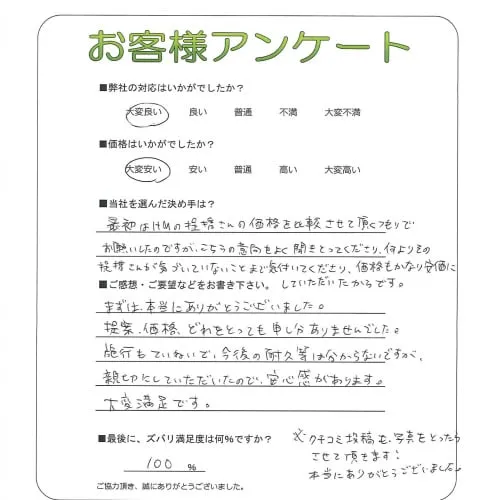 お客様アンケート
■弊社の対応はいかがでしたか?
大変良い 良い 普通 不満 大変不満
■価格はいかがでしたか?
大変安い 安い 普通 高い 大変高い
■当社を選んだ決め手は?
最初はHMの提携さんの価格を比較させて頂くつもりで
お願いしたのですが、こちらの意向をよく聞きとってくださり、何よりもの
提携さんが気づいていないことまで気付いてくださり、価格もかなり安価に
していただいたからです。
■ご感想・ご要望などをお書き下さい。
まずは、本当にありがとうございました。
提案、価格、どれをとっても申し分ありませんでした。
施行もていねいで、今後の耐久等は分からないですが、
親切にしていただいたので、安心感があります。
大変満足です。
■最後に、ズバリ満足度は何%ですか?
100 %
クチコミ投稿も、写真をとったら
させて頂きます!
本当にありがとうございました。
ご協力頂き、誠にありがとうございました。